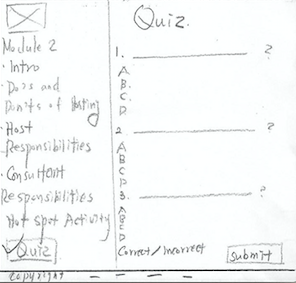 Quiz.
Module 2
· Intro
· Do's and
Don'ts of Hosting
· Host
Responsibilities
· Consultant
Responsibilities
Hot Spot Activity
Quiz
1. ?
A.
B.
C.
D.
2. ?
A
B
C
D
3. ?
A
B
C
D
Correct/Incorrect
Submit
copyright